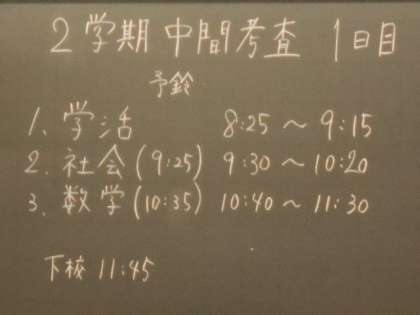 2学期 中間考査 1日目
予鈴
1. 学活 8:25 〜 9:15
2. 社会 (9:25) 9:30 〜 10:20
3. 数学 (10:35) 10:40 〜 11:30
下校 11:45